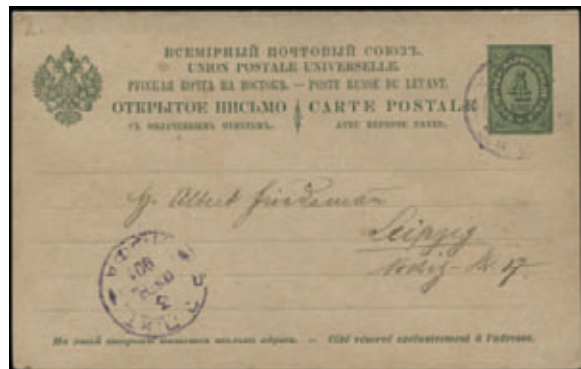 2.
ВСЕМІРНЫЙ ПОЧТОВЫЙ СОЮЗЪ.
UNION POSTALE UNIVERSELLE.
РУССКАЯ ПОЧТА НА ВОСТОКѢ. — POSTE RUSSE DU LEVANT.
ОТКРЫТОЕ ПИСЬМО CARTE POSTALE
СЪ ОПЛАЧЕННЫМЪ ОТВѢТОМЪ. AVEC REPONSE PAYEE.
Albert Friedemann
Leipzig
17.
На этой сторонѣ пишется только адресъ. — Côté réservé exclusivement à l'adresse.